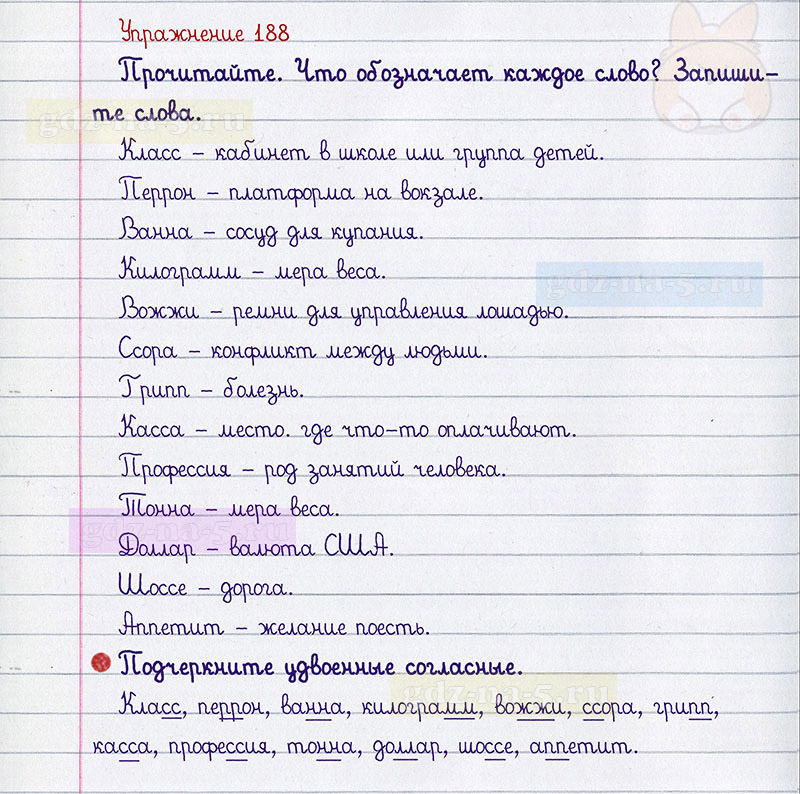 Упражнение 188
Прочитайте. Что обозначает каждое слово? Запиши-
те слова.
gdz-na-5.ru
Класс – кабинет в школе или группа детей.
Перрон – платформа на вокзале.
Ванна – сосуд для купания.
Килограмм – мера веса.
gdz-na-5.ru
Вожжи – ремни для управления лошадью.
Ссора – конфликт между людьми.
Грипп – болезнь.
Касса – место. где что-то оплачивают.
Профессия – род занятий человека.
Тонна – мера веса.
gdz-na-5.ru
Доллар – валюта США.
Шоссе – дорога.
Аппетит – желание поесть.
Подчеркните удвоенные согласные.
gdz-na-5.ru
Класс, перрон, ванна, килограмм, вожжи, ссора, грипп,
касса, профессия, тонна, доллар, шоссе, аппетит.